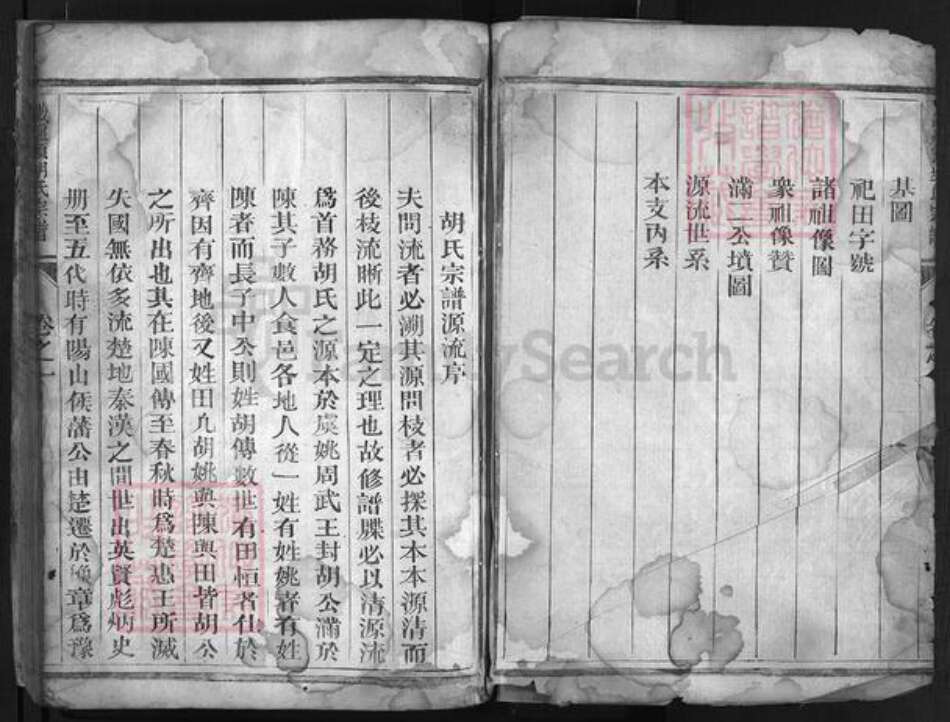 基圖
祀田字號
諸祖像圖
衆祖像贊
滿二公墳圖
源流世系
本支丙系
胡氏宗譜源流序
夫問流者必溯其源問枝者必探其本本源清而
後枝流晰此一定之理也故修譜牒必以清源流
爲首務胡氏之源本於虞姚周武王封胡公滿於
陳其子數人食邑各地人從一姓有姓姚者有姓
陳者而長子中公則姓胡傳數世有田恒者仕於
齊因有齊地後又姓田凡胡姚與陳與田皆胡公
之所出也其在陳國傳至春秋時爲楚惠王所滅
失國無依多流楚地秦漢之間世出英賢彪炳史
册至五代時有陽山侯藩公由楚遷於豫章爲豫
胡氏宗譜
卷之一
SearcH